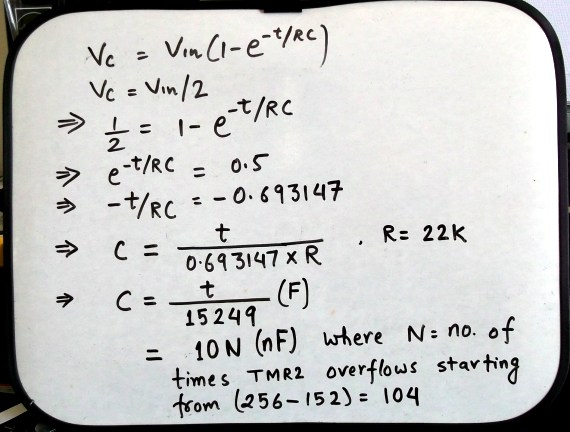 Vc = Vin(1-e^-t/RC)
Vc = Vin/2
⇒ 1/2 = 1-e^-t/RC
⇒ e^-t/RC = 0.5
⇒ -t/RC = -0.693147
⇒ C = t/(0.693147 x R) , R= 22K
⇒ C = t/15249 (F)
= 10N (nF) where N= no. of
times TMR2 overflows starting
from (256-152) = 104